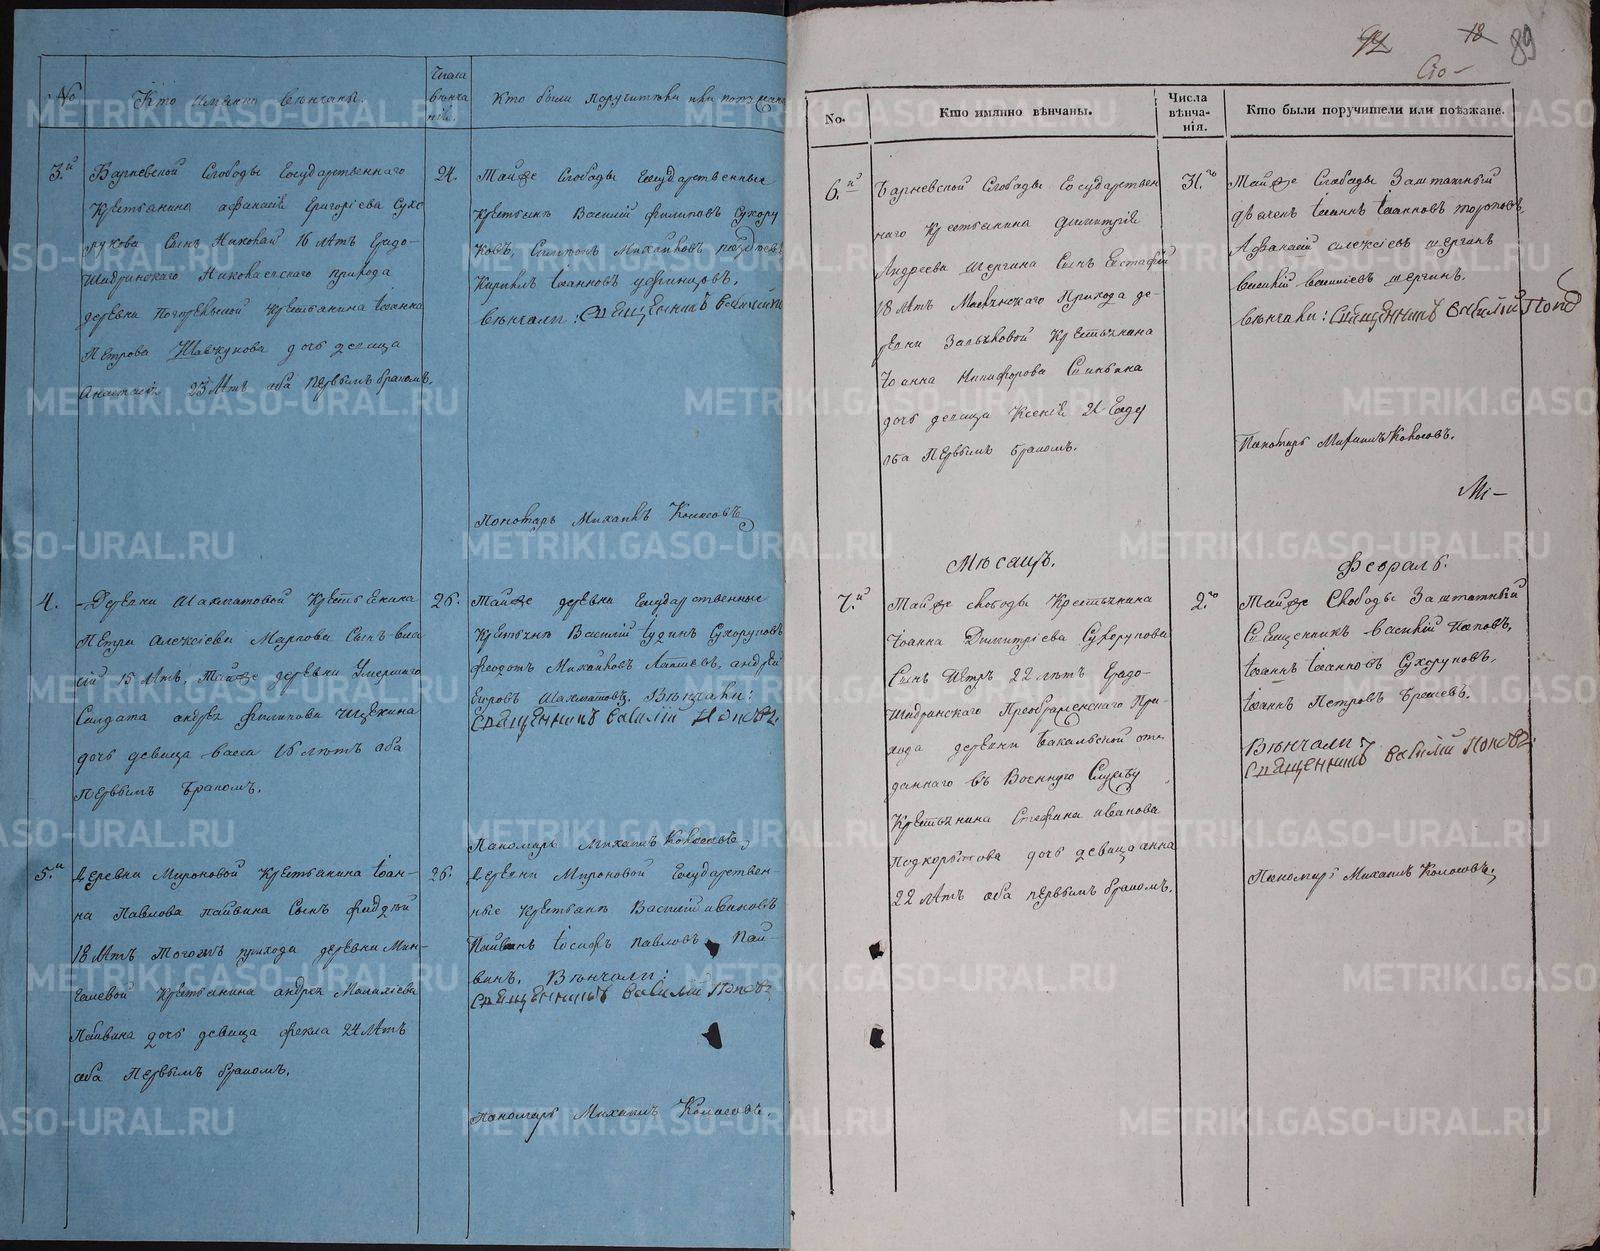 №
Кто имянно венчаны.
Числа
венча
нiя.
Кто были поручители или поезжане
3.й
Барневской Слободы Государственнаго
Крестьянина Афанасiя Григорiева Сухо
рукова Сынъ Николай 16 летъ Градо-
Шадринскаго Николаевскаго прихода
деревни Погорельской Крестьянина Iоанна
Петрова Шавкунова дочь девица
Анастасiя 23 летъ оба первымъ бракомъ.
24.
Тайже Слободы Государственныя
Крестьяне Василiй Филиповъ Сухору
ковъ, Симеонъ Михайловъ
Кирилъ Iоанновъ Уфинцовъ.
венчали: Священникъ Василiй По
Пономарь Михаилъ Колосовъ
4.
Деревни Шахматовой Крестьянина
Петра Алексiева Маркова Сынъ Вла
сiй 15 летъ, Тайже деревни Умершаго
Солдата Андрея Филипова Щукина
дочь девица Васса 16 летъ оба
Первымъ Бракомъ.
26.
Тайже деревни Государственные
Крестьяне Василiй Iудинъ Сухоруковъ
Феодотъ Михайловъ Лаптевъ, Андрей
Егоровъ Шахматовъ, Венчали:
Священникъ Василiй Поповъ.
Пономарь Михаилъ Колосовъ,
5.й
Деревни Мироновой Крестьянина Iоан-
на Павлова Пайвина Сынъ Фаддей
18 летъ тогожъ прихода деревни Мин-
галевой Крестьянина Андрея Малахiева
Пайвина дочь девица Фекла 24 летъ
оба Первымъ бракомъ.
26.
Деревни Мироновой Государствен-
ные Крестьяне Василiй Ивановъ
Пайвинъ Iосифъ Павловъ Пай-
винъ. Венчали:
Священникъ Василiй Поповъ
Пономарь Михаилъ Колосовъ
18
89
Сто-
No.
Кто имянно вѣнчаны.
Числа
вѣнча-
нiя.
Кто были поручители или поѣзжане.
6.й
Барневской Слободы Государствен
наго Крестьянина Димитрiя
Андреева Шергина Сынъ Евстафiй
18 летъ Маслянскаго Прихода де-
ревни Крестьянина
Iоанна Никифорова
дочь девица Ксенiя 21 Году
оба Первымъ бракомъ.
31.го
Тайже Слободы Заштатный
дьяченъ Iоаннъ Iоанновъ Тороповъ,
Афанасiй Алексiевъ Шергинъ
Василiй Васильевъ Шергинъ.
венчали: Священникъ Василiй Попо
Пономарь Михаилъ Колосовъ.
Мi-
Месяцъ.
Февраль.
7.й
Тайже слободы Крестьянина
Iоанна Димитрiева Сухорукова
Сынъ Петръ 22 летъ Градо-
Шадринскаго Преображенскаго При-
хода деревни Бакальской от-
даннаго въ Военную Службу
Крестьянина Стефана Иванова
Подкорытова дочь девица Анна
22 летъ оба первымъ бракомъ.
2.го
Тайже Слободы Заштатный
Священникъ Василiй Поповъ,
Iоаннъ Iоанновъ Сухоруковъ.
Iоаннъ Петровъ
Венчали:
Священникъ Василiй Поповъ.
Пономарь Михаилъ Колосовъ.
METRIKI.GASO-URAL.RU